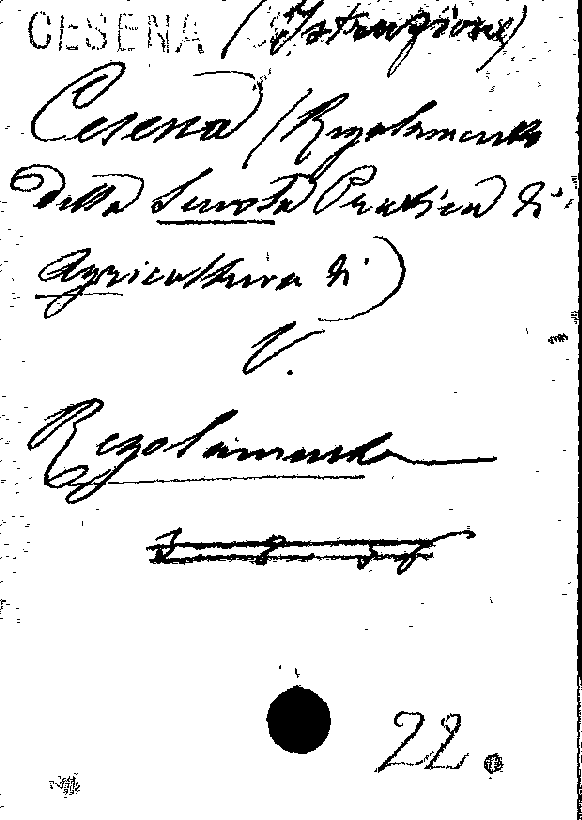 CESENA (Istruzione)
Cesena (Regolamento
della Scuola Pratica di
Agricoltura di)
V.
Regolamento
22.